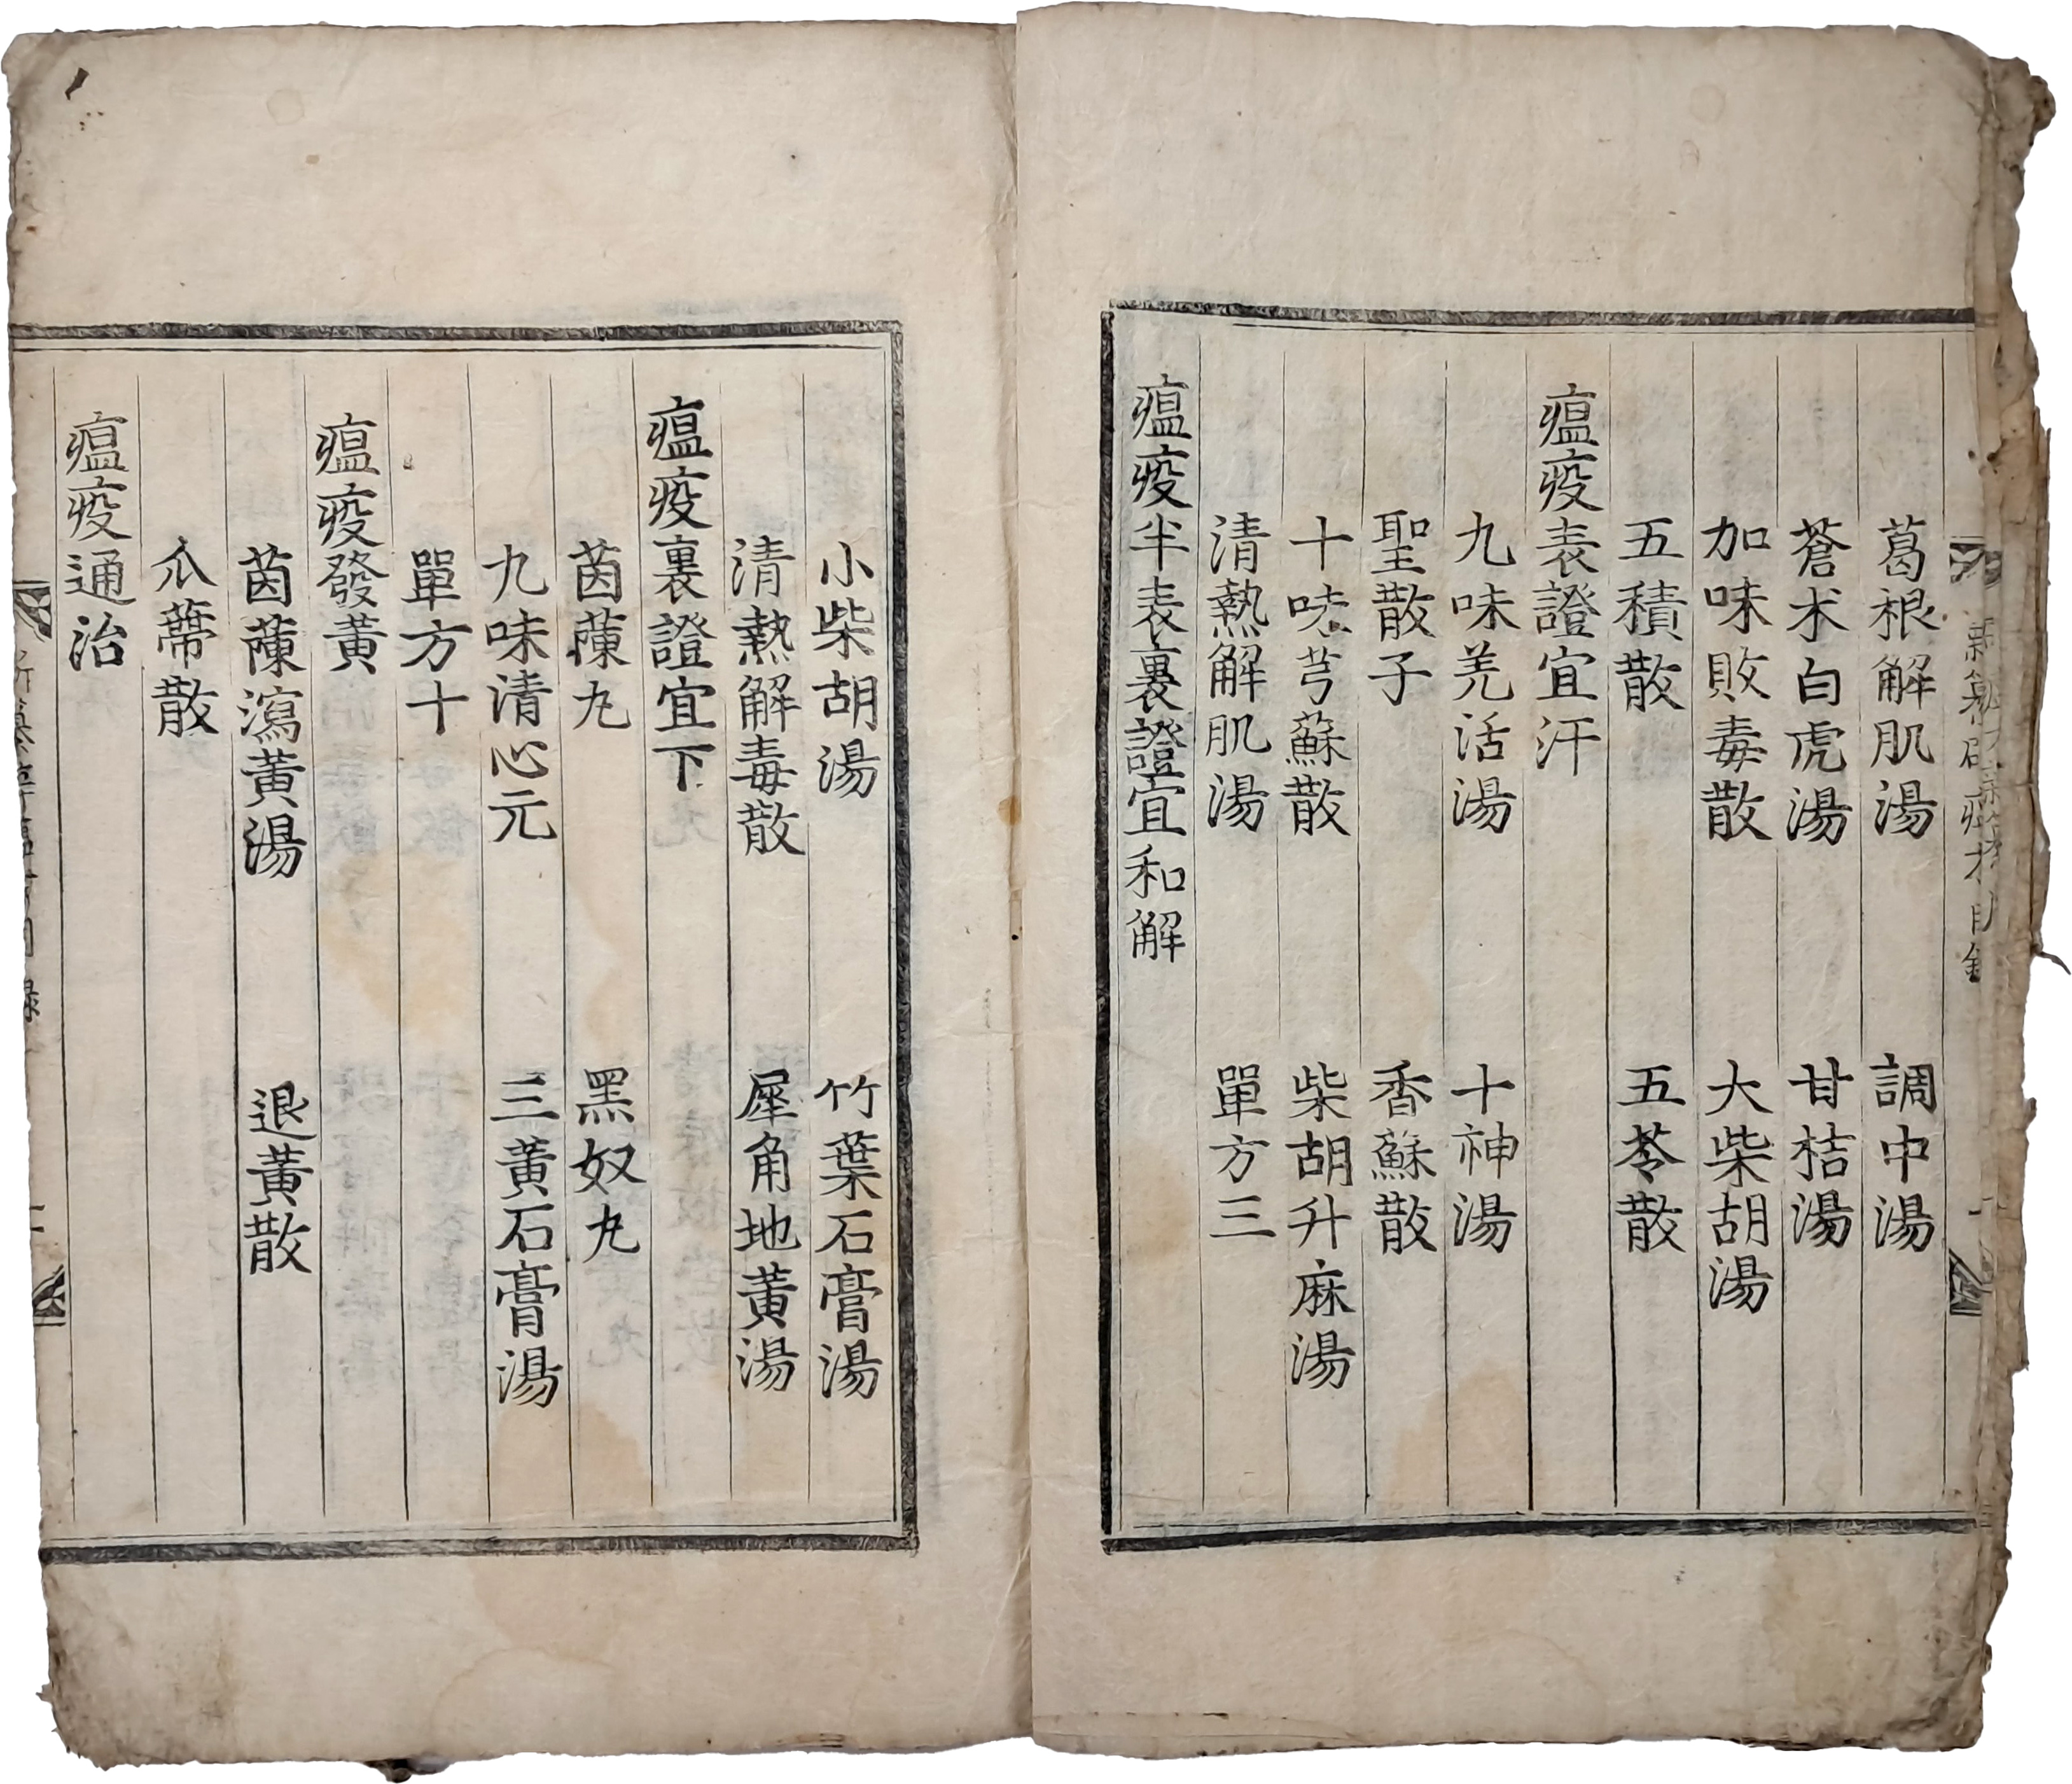 葛根解肌湯　調中湯
蒼朮白虎湯　甘桔湯
加味敗毒散　大柴胡湯
五積散　五苓散
瘟疫表證宜汗
九味羌活湯　十神湯
聖散子　香蘇散
十味芎蘇散　柴胡升麻湯
清熱解肌湯　單方三
瘟疫半表裏證宜和解
小柴胡湯　竹葉石膏湯
清熱解毒散　犀角地黃湯
瘟疫裏證宜下
茵蔯丸　黑奴丸
九味清心元　三黃石膏湯
單方十
瘟疫發黃
茵蔯瀉黃湯　退黃散
瓜蔕散
瘟疫通治